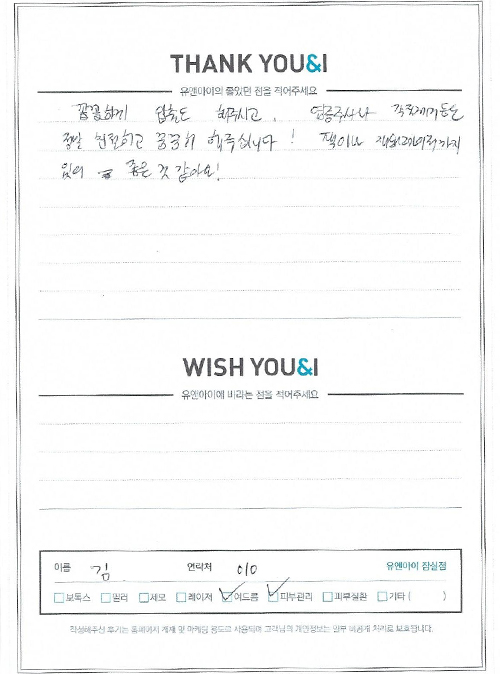 THANK YOU&I
유앤아이의 좋았던 점을 적어주세요
꼼꼼하게 압출도 해주시고, 염증주사나 각질제거 등도
정말 친절하고 꼼꼼히 해주십니다! 팩이나 재생레이저까지
있어 좋은 것 같아요!
WISH YOU&I
유앤아이에 바라는 점을 적어주세요
이름 김 연락처 010 유앤아이 잠실점
보톡스 필러 제모 레이저 여드름 피부관리 피부질환 기타 ( )
작성해주신 후기는 홈페이지 게재 및 마케팅 용도로 사용되며 고객님의 개인정보는 일부 비공개 처리로 보호됩니다.